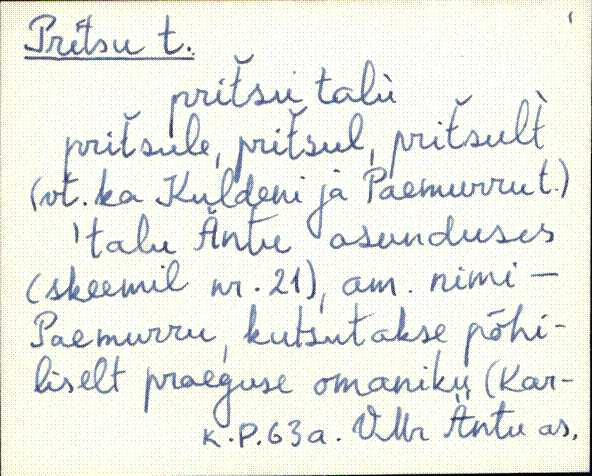 Pritsu t.
pritšu talù
pritšule, pritšul, pritšult̀
(vt. ka Kuldeni ja Paemurru t.)
'talu Äntu asunduses
(skeemil nr. 21), am. nimi —
Paemurru, kutsutakse põhi-
liselt praeguse omaniku (Kar-
K.P.63a. VMr Äntu as.